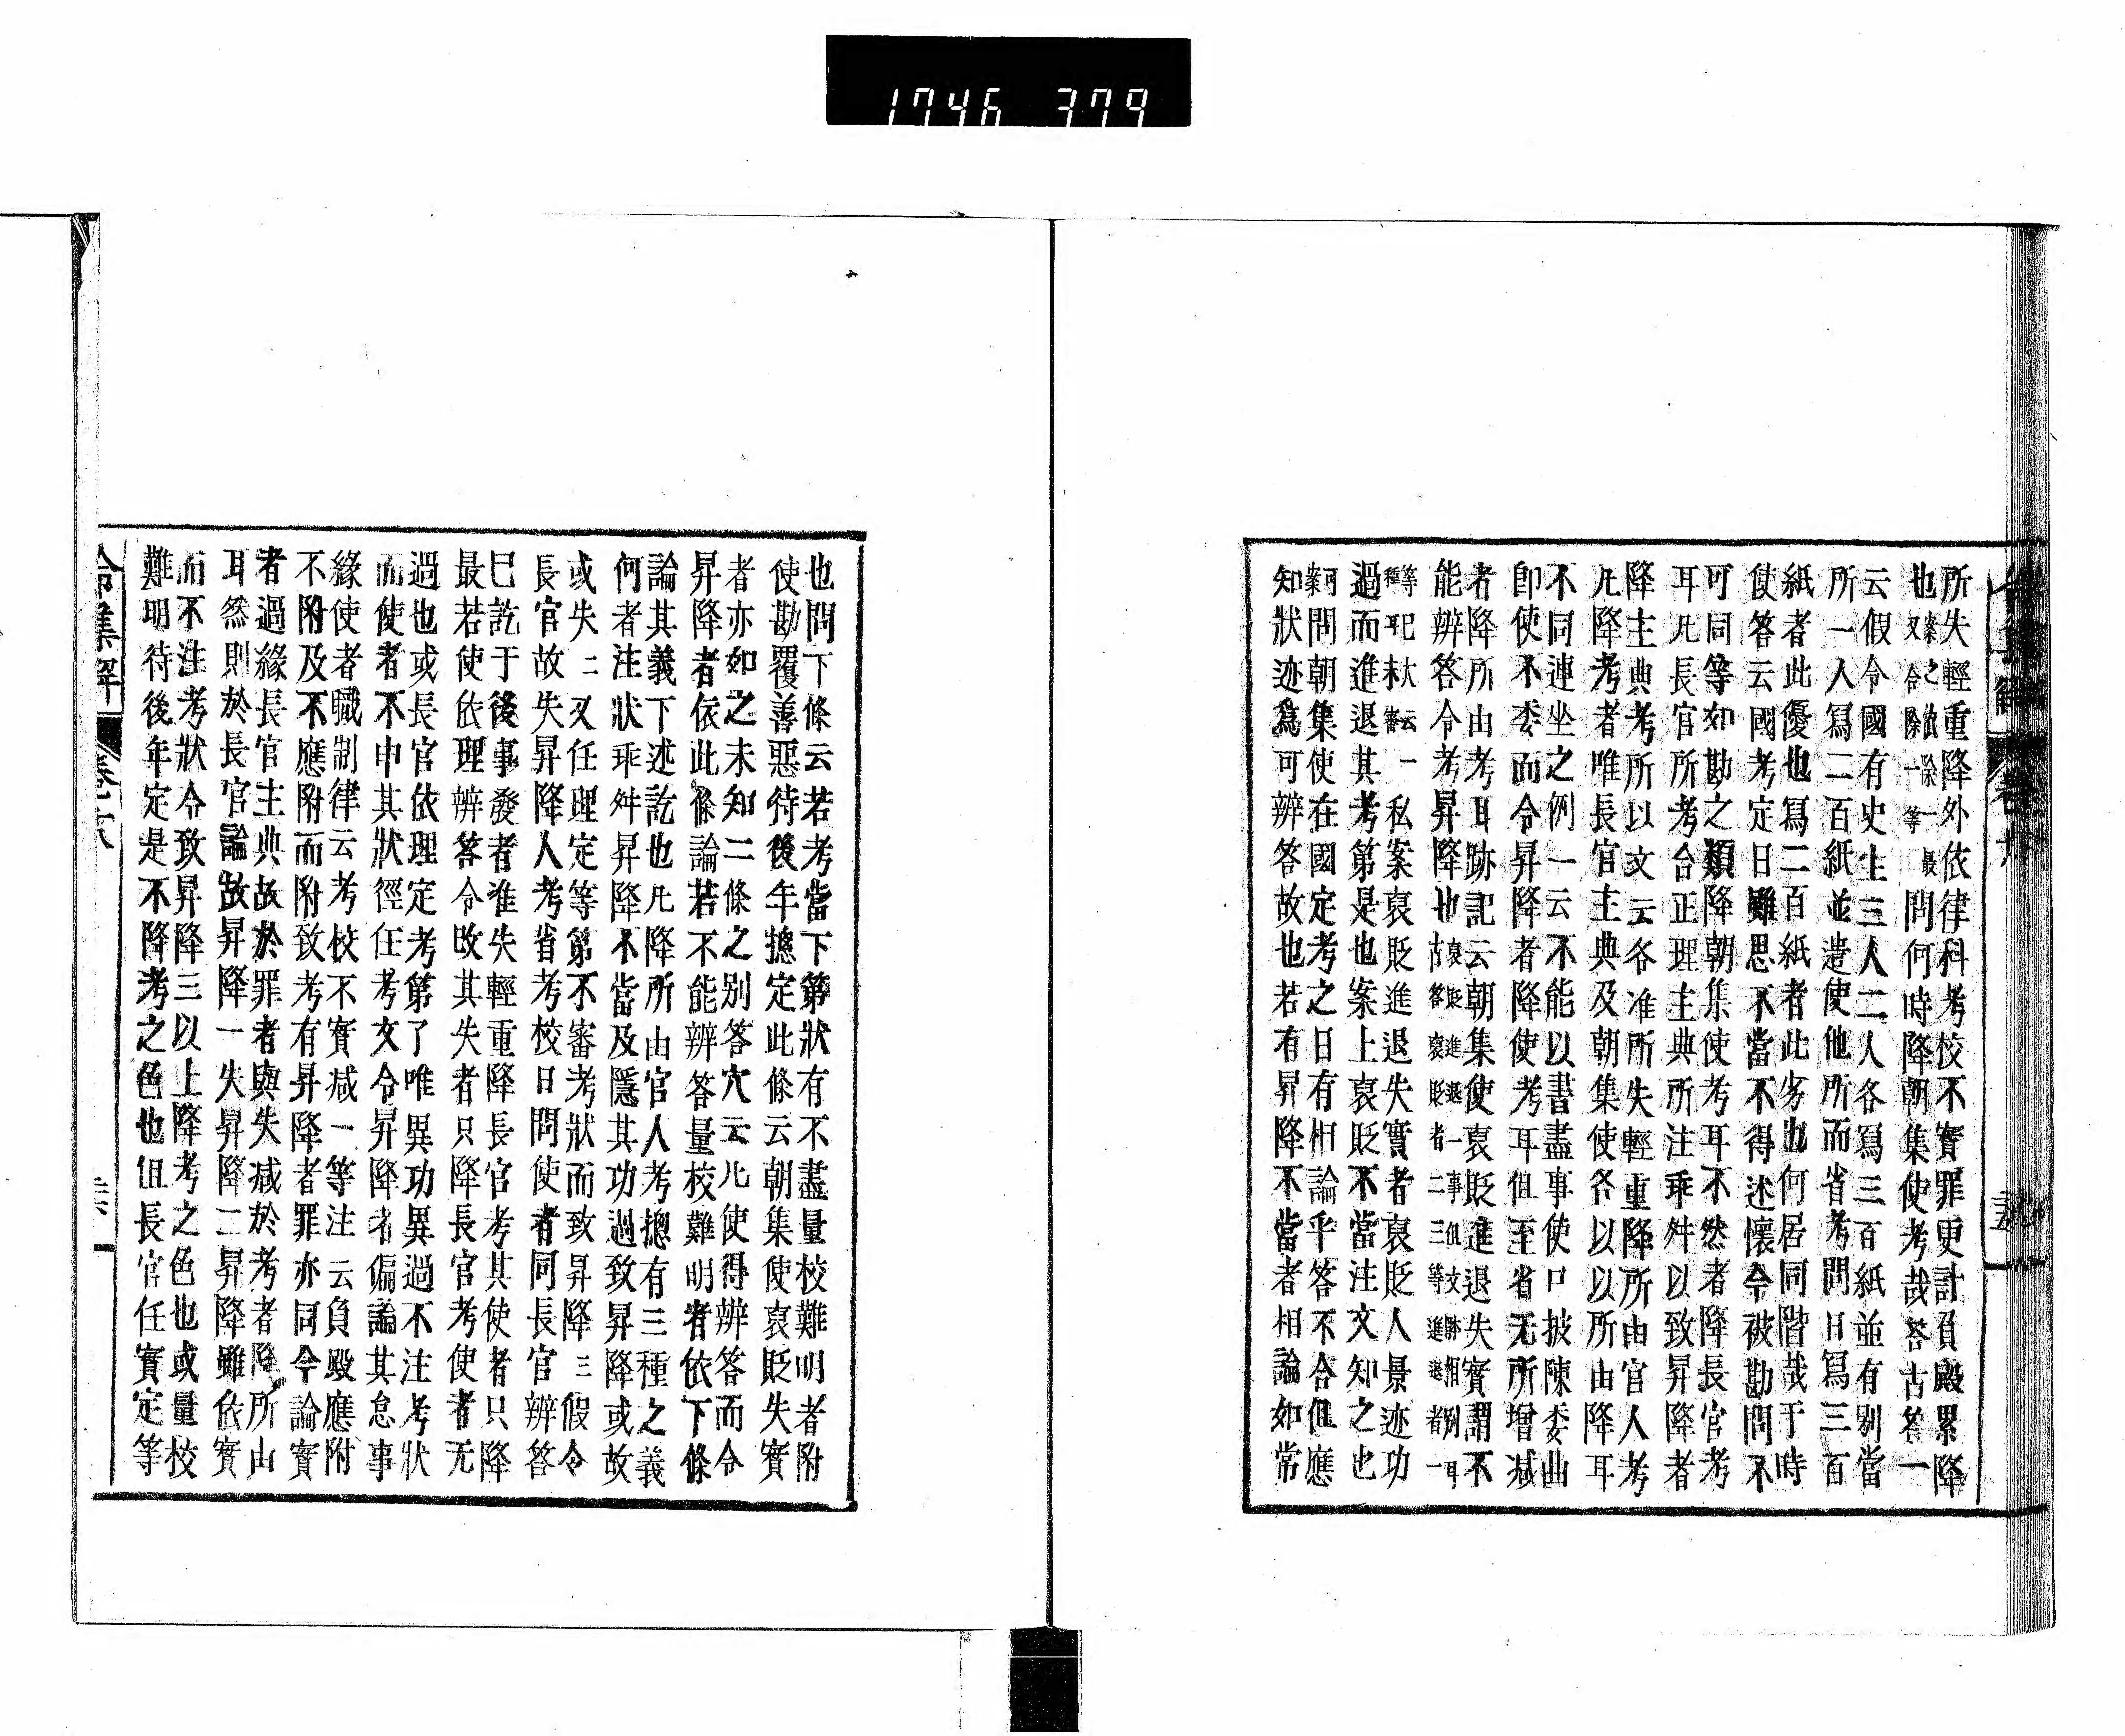 1746 379
所失輕重降外依律科考校不實罪更計負殿累降
也又合降一等問何時降朝集使考哉答古答一
云假令國有史生三人二人各寫三百紙並有別當
所一人寫二百紙並造使他所而省考問日寫三百
紙者此優也寫二百紙者此劣也何居同階哉于時
使答云國考定日雖思不當不得述懷令被勘問不
可同等如勘之類降朝集使考耳不然者降長官考
耳凡長官所考合正理主典所注乖舛以致昇降者
降主典考所以文云各准所失輕重降所由官人考
凡降考者唯長官主典及朝集使各以以所由降耳
不同連坐之例一云不能以書盡事使口披陳委曲
卽使不委而令昇降者降使考耳但至省无所增減
者降所由考耳跡記云朝集使裒貶進退失實謂不
能辨答令考昇降也裒貶進退一事但文跡相別耳古答裒貶者二三等進退者一
等種耳一私案裒貶進退失實者裒貶人景迹功
過而進退其考第是也案上裒貶不當注文知之也
問朝集使在國定考之日有相論乎答不合但應
知狀迹爲可辨答故也若有昇降不當者相論如常
也問下條云若考當下第狀有不盡量校難明者附
使勘覆善惡待後年摠定此條云朝集使裒貶失實
者亦如之未知二條之別答穴云凡使得辨答而令
昇降者依此條論若不能辨答量校難明者依下條
論其義下述訖也凡降所由官人考摠有三種之義
何者注狀乖舛昇降不當及隱其功過致昇降或故
或失二又任理定等第不審考狀而致昇降三假令
長官故失昇降人考省考校日問使者同長官辨答
已訖于後事發者准失輕重降長官考其使者只降
最若使依理辨答令改其失者只降長官考使者无
過也或長官依理定考第了唯異功異過不注考狀
而使者不申其狀徑任考文令昇降者偏論其怠事
緣使者職制律云考校不實減一等注云負殿應附
不附及不應附而附致考有昇降者罪亦同今論實
者過緣長官主典故於罪者與失減於考者降所由
耳然則於長官論故昇降一失昇降二昇降雖依實
而不注考狀令致昇降三以上降考之色也或量校
難明待後年定是不降考之色也但長官任實定等
令集解 卷十八 二十六